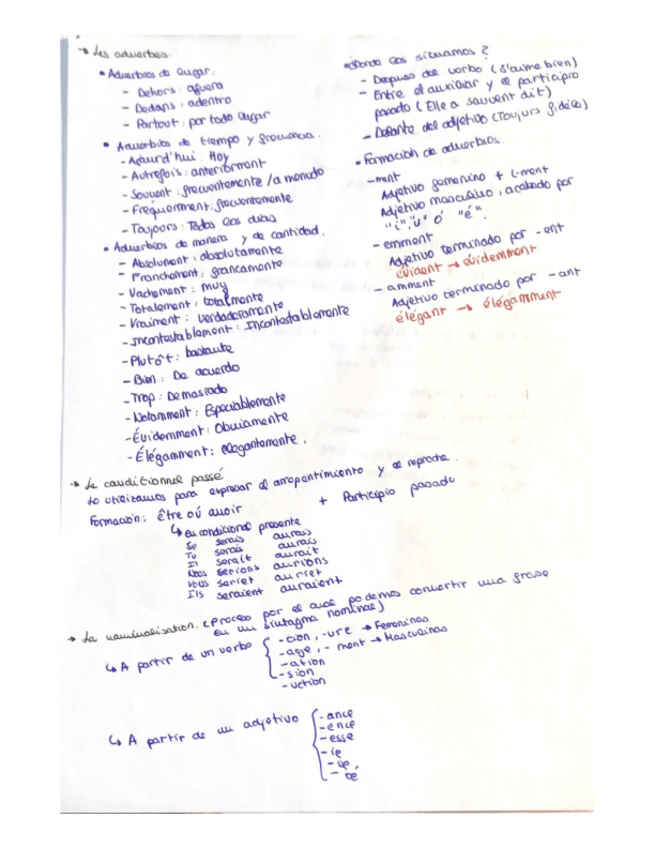 → Les adverbes.
• Adverbios de lugar.
- Dehors : afuera
- Dedans : adentro
- Partout : por todo lugar
• Adverbios de tiempo y frecuencia.
- Aujurd'hui : Hoy
- Autrefois : anteriorment
- Souvent : frecuentemente / a menudo
- Frequemment : frecuentemente
- Toujours : Todos los dias
• Adverbios de manera y de cantidad.
- Absolument : absolutamente
- Franchement : francamente
- Vachement : muy
- Totalement : totalmente
- Vraiment : verdaderamente
- Incontestablement : Incontestablemente
- Plutôt : bastante
- Bien : De acuerdo
- Trop : Demasiado
- Notamment : Especiablemente
- Évidemment : Obviamente
- Élégamment : elegantemente.
• ¿Donde los situamos?
- Despues del verbo (J'aime bien)
- Entre el auxiliar y el participio
pasado (Elle a souvent dit)
- Delante del adjetivo (Toujurs fidèle)
• Formación de adverbios.
- ment
Adjetivo femenino + (-ment
Adjetivo masculino, acabado por
"i", "u" ó "é".
- emment
Adjetivo terminado por -ent
évident → évidemment
- amment
Adjetivo terminado por -ant
élégant → élégamment
→ Le conditionnel passé
Lo utilizamos para expresar el arrepentimiento y el reproche.
Formación: être où avoir + Participio pasado
↳ en condicional presente
Je serais aurais
Tu serais aurais
Il serait aurait
Nous serions aurions
Vous seriez auriez
Ils seraient auraient
→ La nominalisation. (Proceso por el cual podemos convertir una frase
en un sintagma nominal)
↳ A partir de un verbo
-cion, -ure → Femeninas
-age, -ment → Masculinas
-ation
-sion
-uction
↳ A partir de un adjetivo
-ance
-ence
-esse
-ie
-ue,
-té